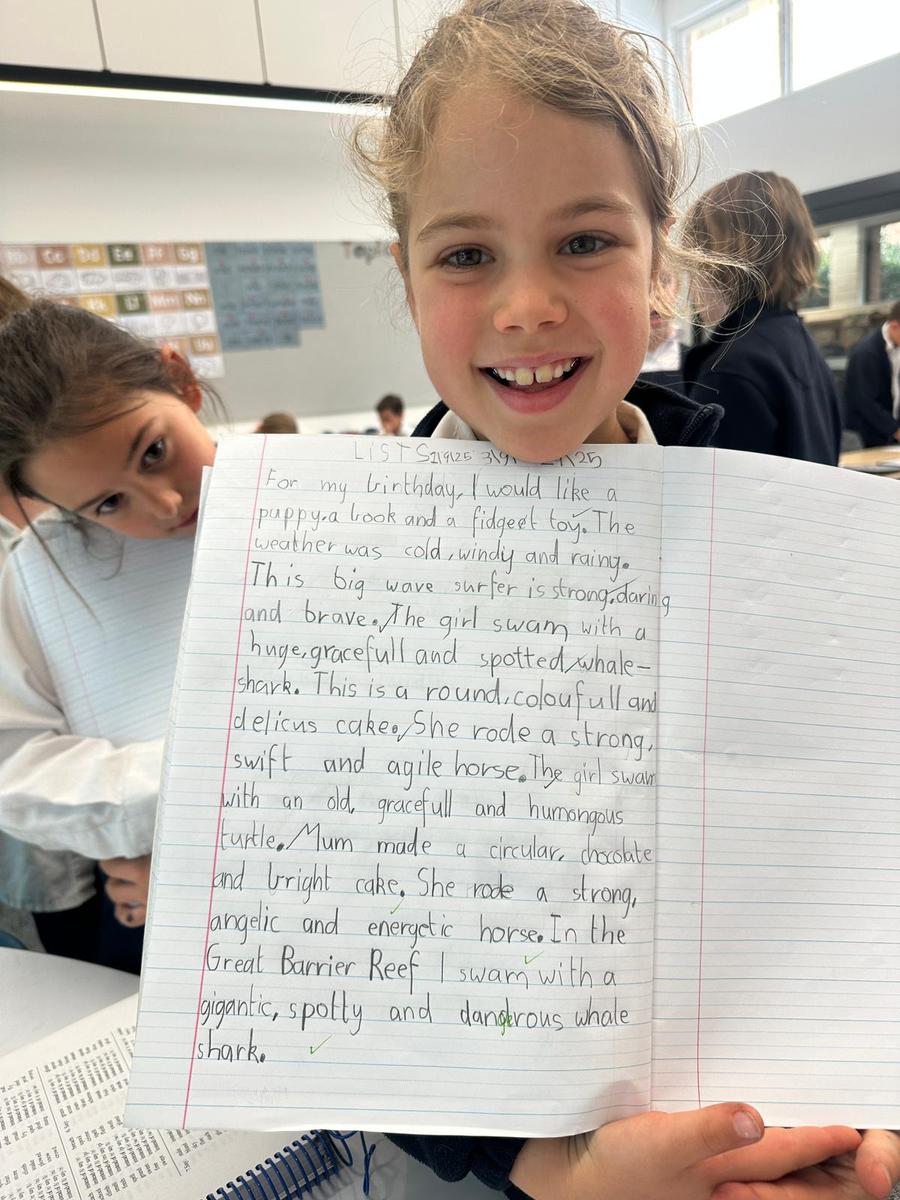 LISTS 1/9/25 3/9/
For my birthday, I would like a
puppy, a book and a fidgeet toy. The
weather was cold, windy and rainy.
This big wave surfer is strong, daring
and brave. The girl swam with a
huge, gracefull and spotted whale-
shark. This is a round, coloufull and
delicus cake. She rode a strong,
swift and agile horse. The girl swam
with an old, gracefull and humongous
turtle. Mum made a circular, chocolate
and bright cake. She rode a strong,
angelic and energetic horse. In the
Great Barrier Reef I swam with a
gigantic, spotty and dangerous whale
shark.
Cc Dd Ee Ff Gg
Ll Mm Nn